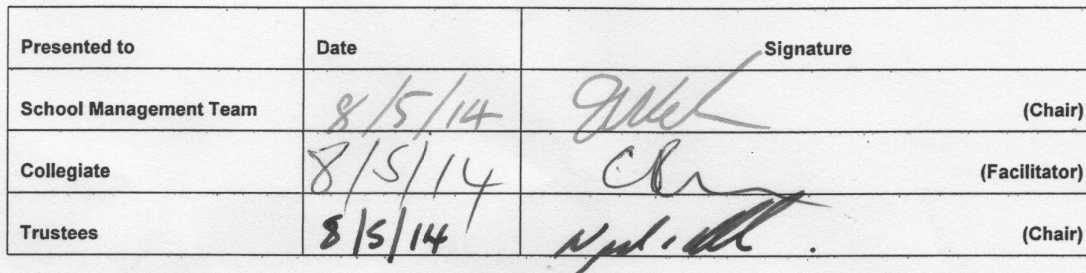 Presented to Date Signature
School Management Team 8/5/14 (Chair)
Collegiate 8/5/14 (Facilitator)
Trustees 8/5/14 (Chair)